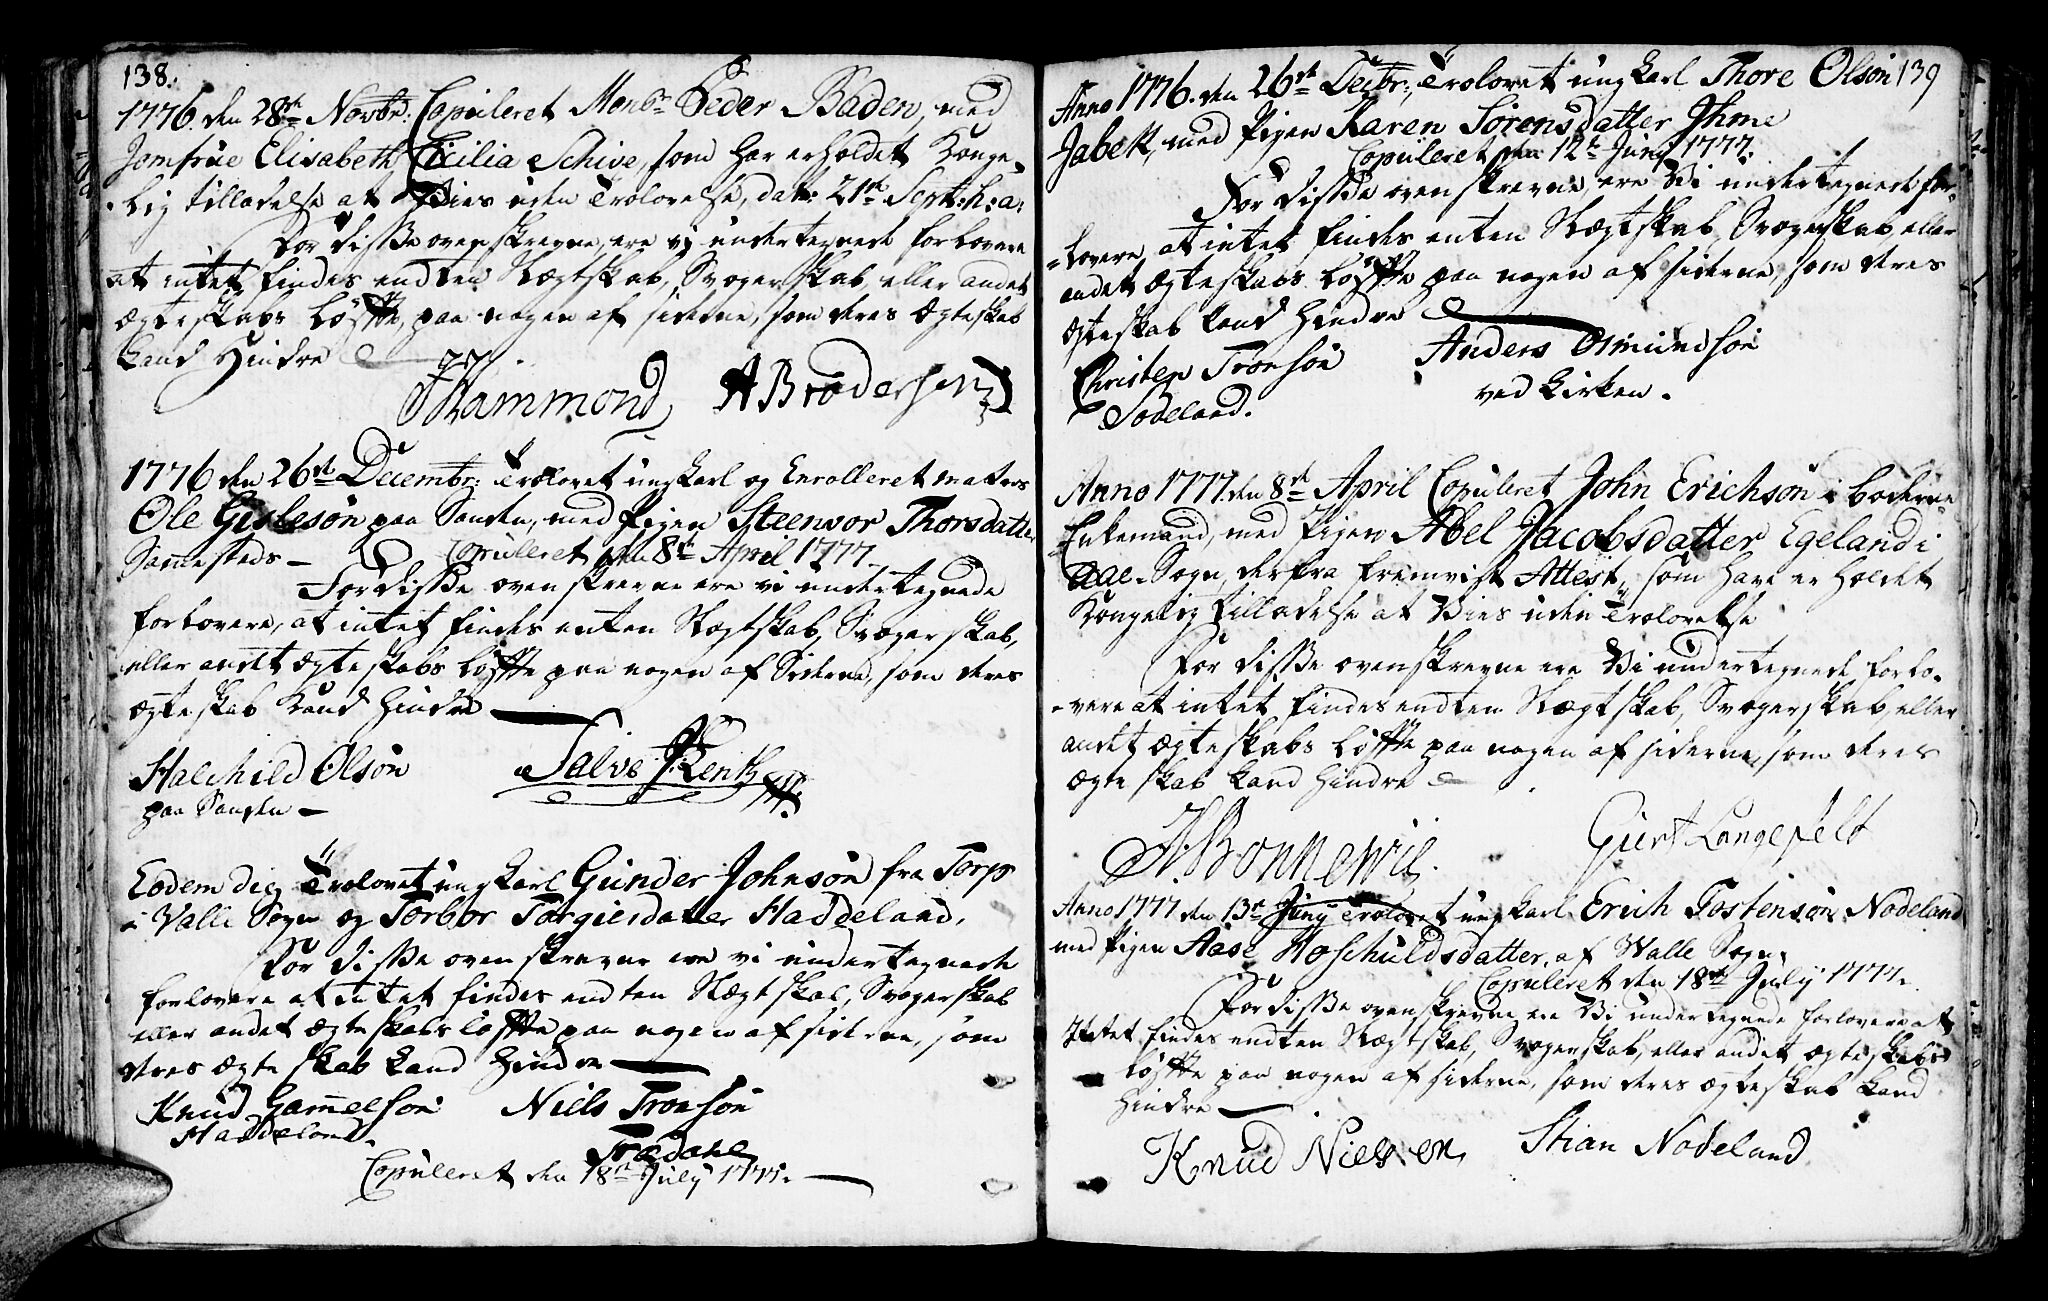 138.
1776. den 28de Novbr. Copuleret Monsr Peder Baden, med
Jomfrue Elisabeth Cicilia Schive, som har erholdet Konge-
lig tilladelse at Vies uden Trolovelse, dat: 21de Sept: h: a:
For disse ovenskrevne, ere vj undertegnede forlovere
at intet findes endten Slægtskab, Svogerskab, eller andet
Ægteskabs Løffte, paa nogen af siderne, som deres Ægteskab
kand Hindre
Hammond ABrodersen
1776 den 26de Decembr: Trolovet ungkarl og Enrolleret Matros
Ole Gislesøn paa Sanden, med Pigen Steenvor Thorsdatter
Sannesteds -
Copuleret den 8de April 1777.
For disse ovenskrevne ere vi undertegnede
forlovere, at intet findes enten Slægtskab, Svogerskab,
eller andet Ægteskabs Løffte paa nogen af Siderne, som deres
Ægteskab Kand Hindre
Halchild Olsøn Salve
paa Sanden -
Eodem die Trolovet ungkarl Gunder Johnsøn fra Torp
i Valle Sogn og Torbor Torgiersdatter Haddeland,
For disse ovenskrevne ere vi undertegnede
forlovere at intet findes endten Slægtskab, Svogerskab
eller andet Ægteskabs Løffte paa nogen af siderne, som
deres Ægteskab kand Hindre
Knud Gamelsøn Niels Tronsøn
Haddeland. Trædahl
Copuleret den 18de July 1777.
Anno 1776. den 26de Decbr:, Trolovet ungkarl Thore Olsøn 139
Jabek, med Pigen Karen Sørensdatter Ihme
Copuleret den 12te Juny 1777.
For disse ovenskrevne, ere Vi undertegnede for-
lovere, at intet findes enten Slægtskab, Svogerskab, eller
andet Ægteskabs Løffte paa nogen af siderne, som deres
Ægteskab kand Hindre
Christen Tronsøn Anders Osmundsøn
Sodeland. ved Kirken.
Anno 1777. den 8de April Copuleret John Erichsøn i boderne
Enkemand, med Pigen Abel Jacobsdatter Egeland i
Sogn, derfra fremvist Attest, som have erholdet
Kongelig Tilladelse at Vies uden Trolovelse
For disse ovenskrevne ere Vi undertegnede forlo-
vere at intet findes endten Slægtskab, Svogerskab, eller
andet Ægteskabs Løffte paa nogen af siderne, som deres
Ægteskab kand Hindre
Bonnewie. Giert Langefelt
Anno 1777 den 13de Juny Trolovet ungkarl Erich Tostensøn Nodeland
med Pigen Aase Hoschuldsdatter, af Walle Sogn,
Copuleret den 18de July 1777.
For disse ovenskrevne ere Vi undertegnede forlovere at
Intet findes endten Slægtskab, Svogerskab, eller andet Ægteskabs
Løffte paa nogen af siderne, som deres Ægteskab kand
Hindre
Knud Nielsen, Stian Nodeland